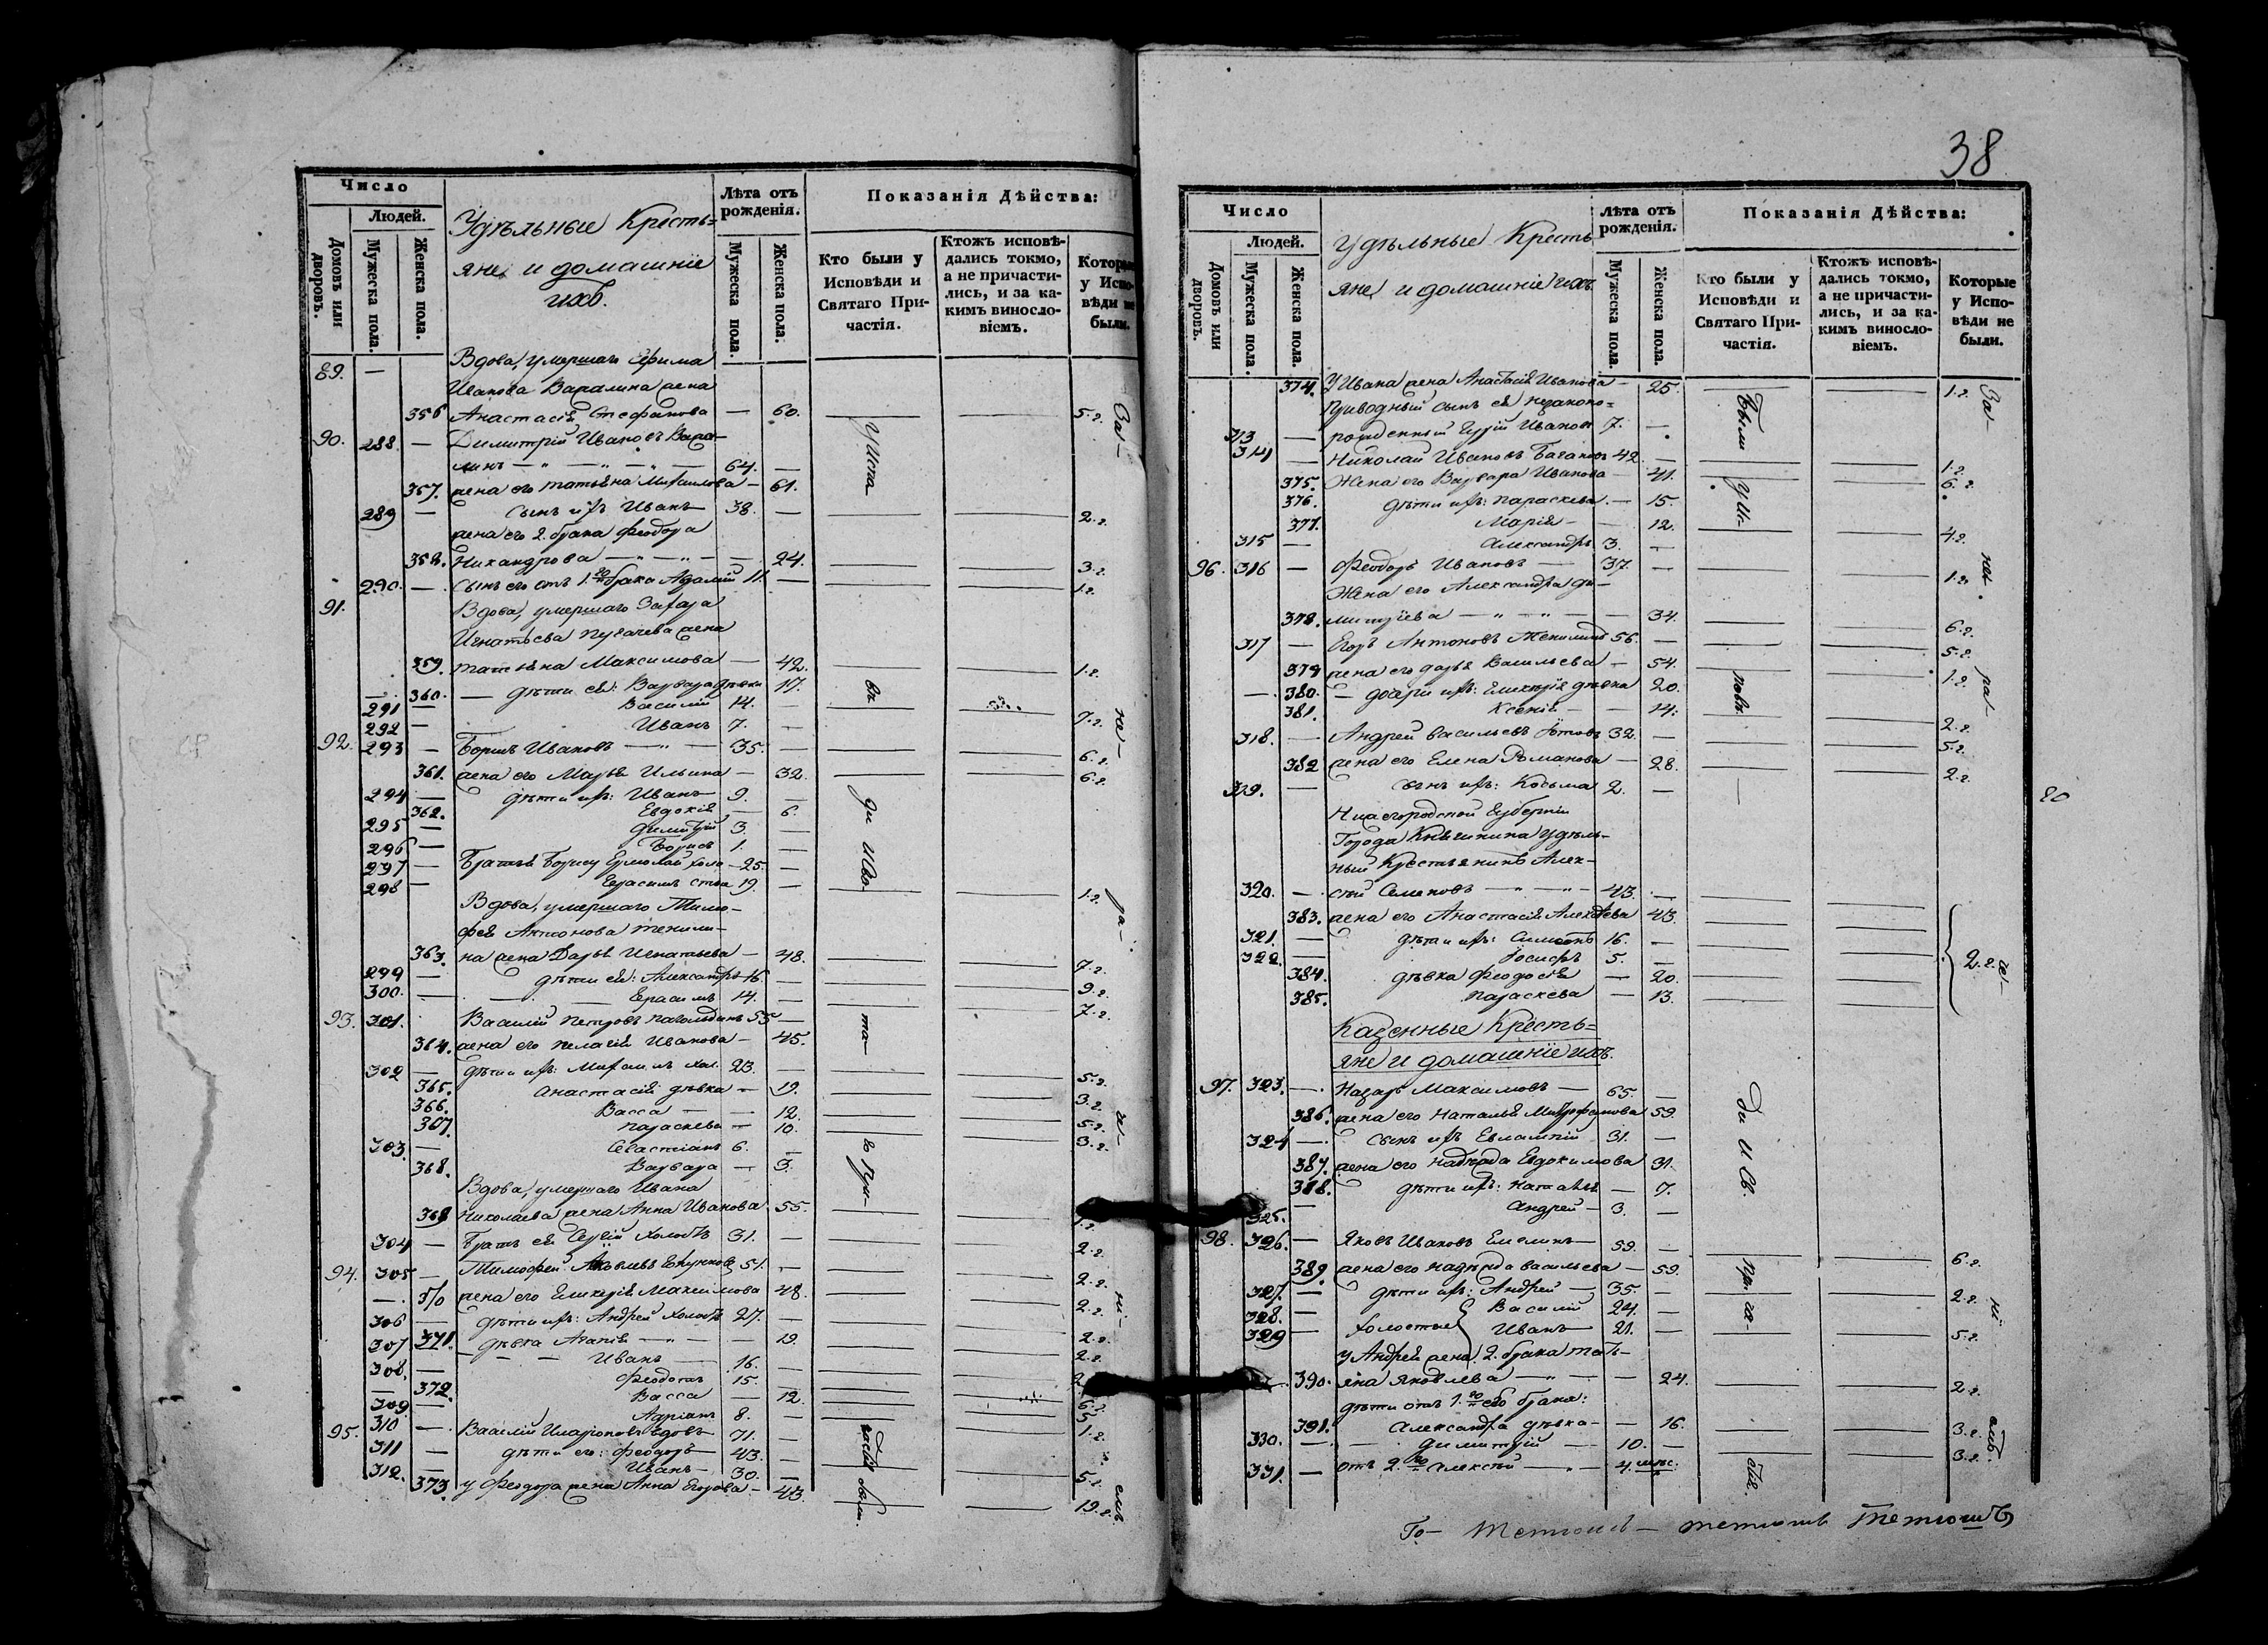 Число
Людей.
Домовъ или дворовъ.
Мужеска пола.
Женска пола.
Удѣльные Кресть=
яне, и домашніе
ихъ.
Лѣта отъ рожденія.
Мужеска пола.
Женска пола.
Показанія Дѣйства:
Кто были у Исповѣди и Святаго При-частія.
Ктожъ исповѣ-дались токмо, а не причасти-лись, и за ка-кимъ винословіемъ.
Которые у Испо-вѣди не были.
89. — Вдова, умершаго Ефима
Иванова жена
356 Анастасія Стефанова — 60. 5.г.
90. 288. — Димитрій Ивановъ Вара-
линъ — 64. —
357. жена его Татьяна Михайлова — 61.
289 — сынъ ихъ Иванъ 38. — 2.г.
жена его 2. брака Феодора
358. Никандрова — 24. 3.г.
290. — сынъ его отъ 1.го брака 11. — 1.г.
91. Вдова, умершаго Захара
Игнатьева Пугачева жена
359. Татьяна Максимова — 42. 1.г.
— 360. — дѣти ея: Варвара дѣвка 17.
291 — Василій 14. —
292 — Иванъ 7. — 7.г.
92. 293 — Борисъ Ивановъ — 35. — 6.г.
361. жена его Марья Ильина — 32. 6.г.
294 — дѣти ихъ: Иванъ 9. —
362. Евдокія — 6.
295 — Димитрій 3. —
296 — Борисъ 1. —
297 — Братья Борису Ермолай холо — 25. —
298 — Герасимъ 19. — 1.г.
Вдова, умершаго Тимо-
фея Антонова Тенили-
363. на жена Дарья Игнатьева — 48. 7.г.
299 — дѣти ея: Александръ 16. — 9.г.
300. — Герасимъ 14. — 7.г.
93. 301. Василій Петровъ 55 —
364. жена его Пелагія Иванова — 45.
302 — дѣти ихъ: Михаилъ хол. 23. — 5.г.
365. Анастасія дѣвка — 19. 3.г.
366. Васса — 12. 5.г.
367. Параскева — 10. 3.г.
303. — Севастіанъ 6. —
368. Варвара — 3.
Вдова, умершаго Ивана
368 Николаева жена Анна Иванова 55. 1.г.
304 — Братъ ея холостъ 31. — 2.г.
94. 305 — Тимофей Яковлевъ 51. — 2.г.
— 370 жена его Гликерія Максимова 48. 2.г.
306 — дѣти ихъ: Андрей холостъ 27. — 2.г.
371. дѣвка Агапія — 19. 2.г.
307 — Иванъ 16. —
308. — Феодотъ 15. —
— 372. Васса — 12. 6.г.
309 — Адріанъ 8. — 5
95. 310 — Василій Иларіоновъ 71. — 1.г.
311 — дѣти его: Феодоръ — 43. —
312. — Иванъ — 30. — 5.г.
373. у Феодора жена Анна Егорова — 43. 19.г.
38
Число
Людей.
Домовъ или дворовъ.
Мужеска пола.
Женска пола.
Удѣльные Кресть
яне, и домашніе ихъ.
Лѣта отъ рожденія.
Мужеска пола.
Женска пола.
Показанія Дѣйства:
Кто были у Исповѣди и Святаго При-частія.
Ктожъ исповѣ-дались токмо, а не причасти-лись, и за ка-кимъ винословіемъ.
Которые у Испо-вѣди не были.
374. У Ивана жена Анастасія Иванова — 25. 1.г.
Приводный сынъ ея незаконо=
313 — рожденный Ивановъ 7. —
314 — Николай Ивановъ 42. — 1.г.
375. Жена его Варвара Иванова — 41. 6.г.
376. дѣти ихъ: Параскева — 15.
377. Марія — 12. 4.г.
315 — Александръ 3. —
96. 316 — Феодоръ Ивановъ — 37. — 1.г.
Жена его Александра Ди-
378. митріева — 34. 6.г.
317 — Егоръ Антоновъ Тенилинъ 56. — 5.г.
379 жена его Дарья Васильева — 54. 1.г.
— 380. — дочери ихъ: Гликерія дѣвка 20.
381. Ксенія — 14. 2.г.
318. — Андрей Васильевъ 32. — 5.г.
382 жена его Елена Романова — 28. 2.г.
319. — сынъ ихъ: Козьма 2. —
Нижегородской Губерніи
Города Княгинина Удѣль-
ный Крестьянинъ Алек-
320. — сѣй Семеновъ — 43. —
383. жена его Анастасія Алексѣева 43.
321. — дѣти ихъ: Симеонъ 16. —
322. — Іосифъ 5. — 2.г.
384. дѣвка Феодосія — 20.
385. Параскева — 13.
Казенные Кресть=
яне и домашніе ихъ.
97. 323. — Назаръ Максимовъ — 65. —
386. жена его Наталья Митрофанова 59.
324 — сынъ ихъ Евлампій 31. —
387. жена его Надежда Евдокимова 31.
388. дѣти ихъ: Наталья — 7.
325. — Андрей — 3. —
98. 326. — Яковъ Ивановъ Емелинъ — 59. — 6.г.
389. жена его Надежда Васильева — 59.
327. — дѣти ихъ: Андрей — 35. — 2.г.
328. — Василій 24. —
329 — холостые Иванъ 21. — 5.г.
у Андрея жена 2. брака Тать-
390. яна Яковлева — 24. 2.г.
дѣти отъ 1.го его брака:
391. Александра дѣвка — 16. 3.г.
330. — Димитрій — 10. — 3.г.
331. — отъ 2.го Алексѣй — 4. мѣс.
20